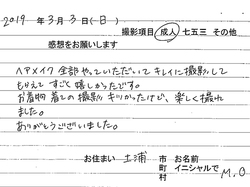 2019年 3月 3日(日)
撮影項目 成人 七五三 その他
感想をお願いします
ヘアメイク 全部やっていただいて キレイに撮影して
もらえて すごく 嬉しかったです。
お着物 着ての撮影 キツかったけど、楽しく撮れ
ました。
ありがとうございました。
お住まい 土浦 市町村 お名前 イニシャルで M.O